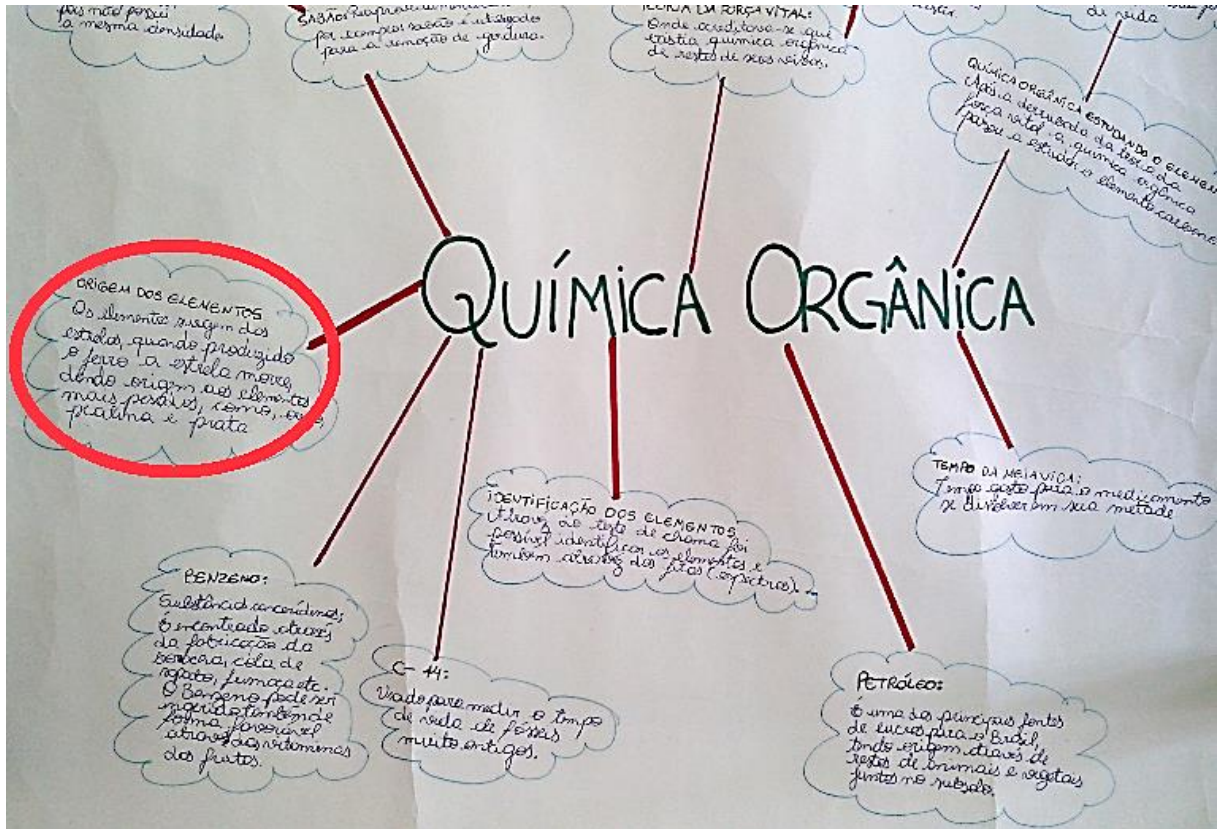 pois não possui
a mesma densidade.
SABÃO:
por compos sabão é utilizado
para a remoção de gordura.
TEORIA DA FORÇA VITAL:
Onde acreditava-se que
existia química orgânica
de restos de seres vivos.
existir
de vida
QUÍMICA ORGÂNICA ESTUDANDO O ELEMEN
Após a derrubada da teoria da
força vital a química orgânica
passou a estudar o elemento carbono
QUÍMICA ORGÂNICA
ORIGEM DOS ELEMENTOS
Os elementos surgem das
estrelas, quando produzido
o ferro a estrela morre,
dando origem aos elementos
mais pesados, como, ouro,
platina e prata
IDENTIFICAÇÃO DOS ELEMENTOS
Através do teste de chama foi
possível identificar os elementos e
também através das fitas (espectros).
TEMPO DA MEIA VIDA:
Tempo gasto para o medicamento
se dissolver em sua metade
BENZENO:
Substâncias cancerígenas,
É encontrado através
da fabricação da
borracha, cola de
sapato, fumaça etc.
O Benzeno pode ser
ingerido também de
forma favorável
através das vitaminas
das frutas.
C-14:
Usado para medir o tempo
de vida de fósseis
muito antigos.
PETRÓLEO:
É uma das principais fontes
de lucros para o Brasil,
tendo origem através de
restos de animais e vegetais
juntos no subsolo.